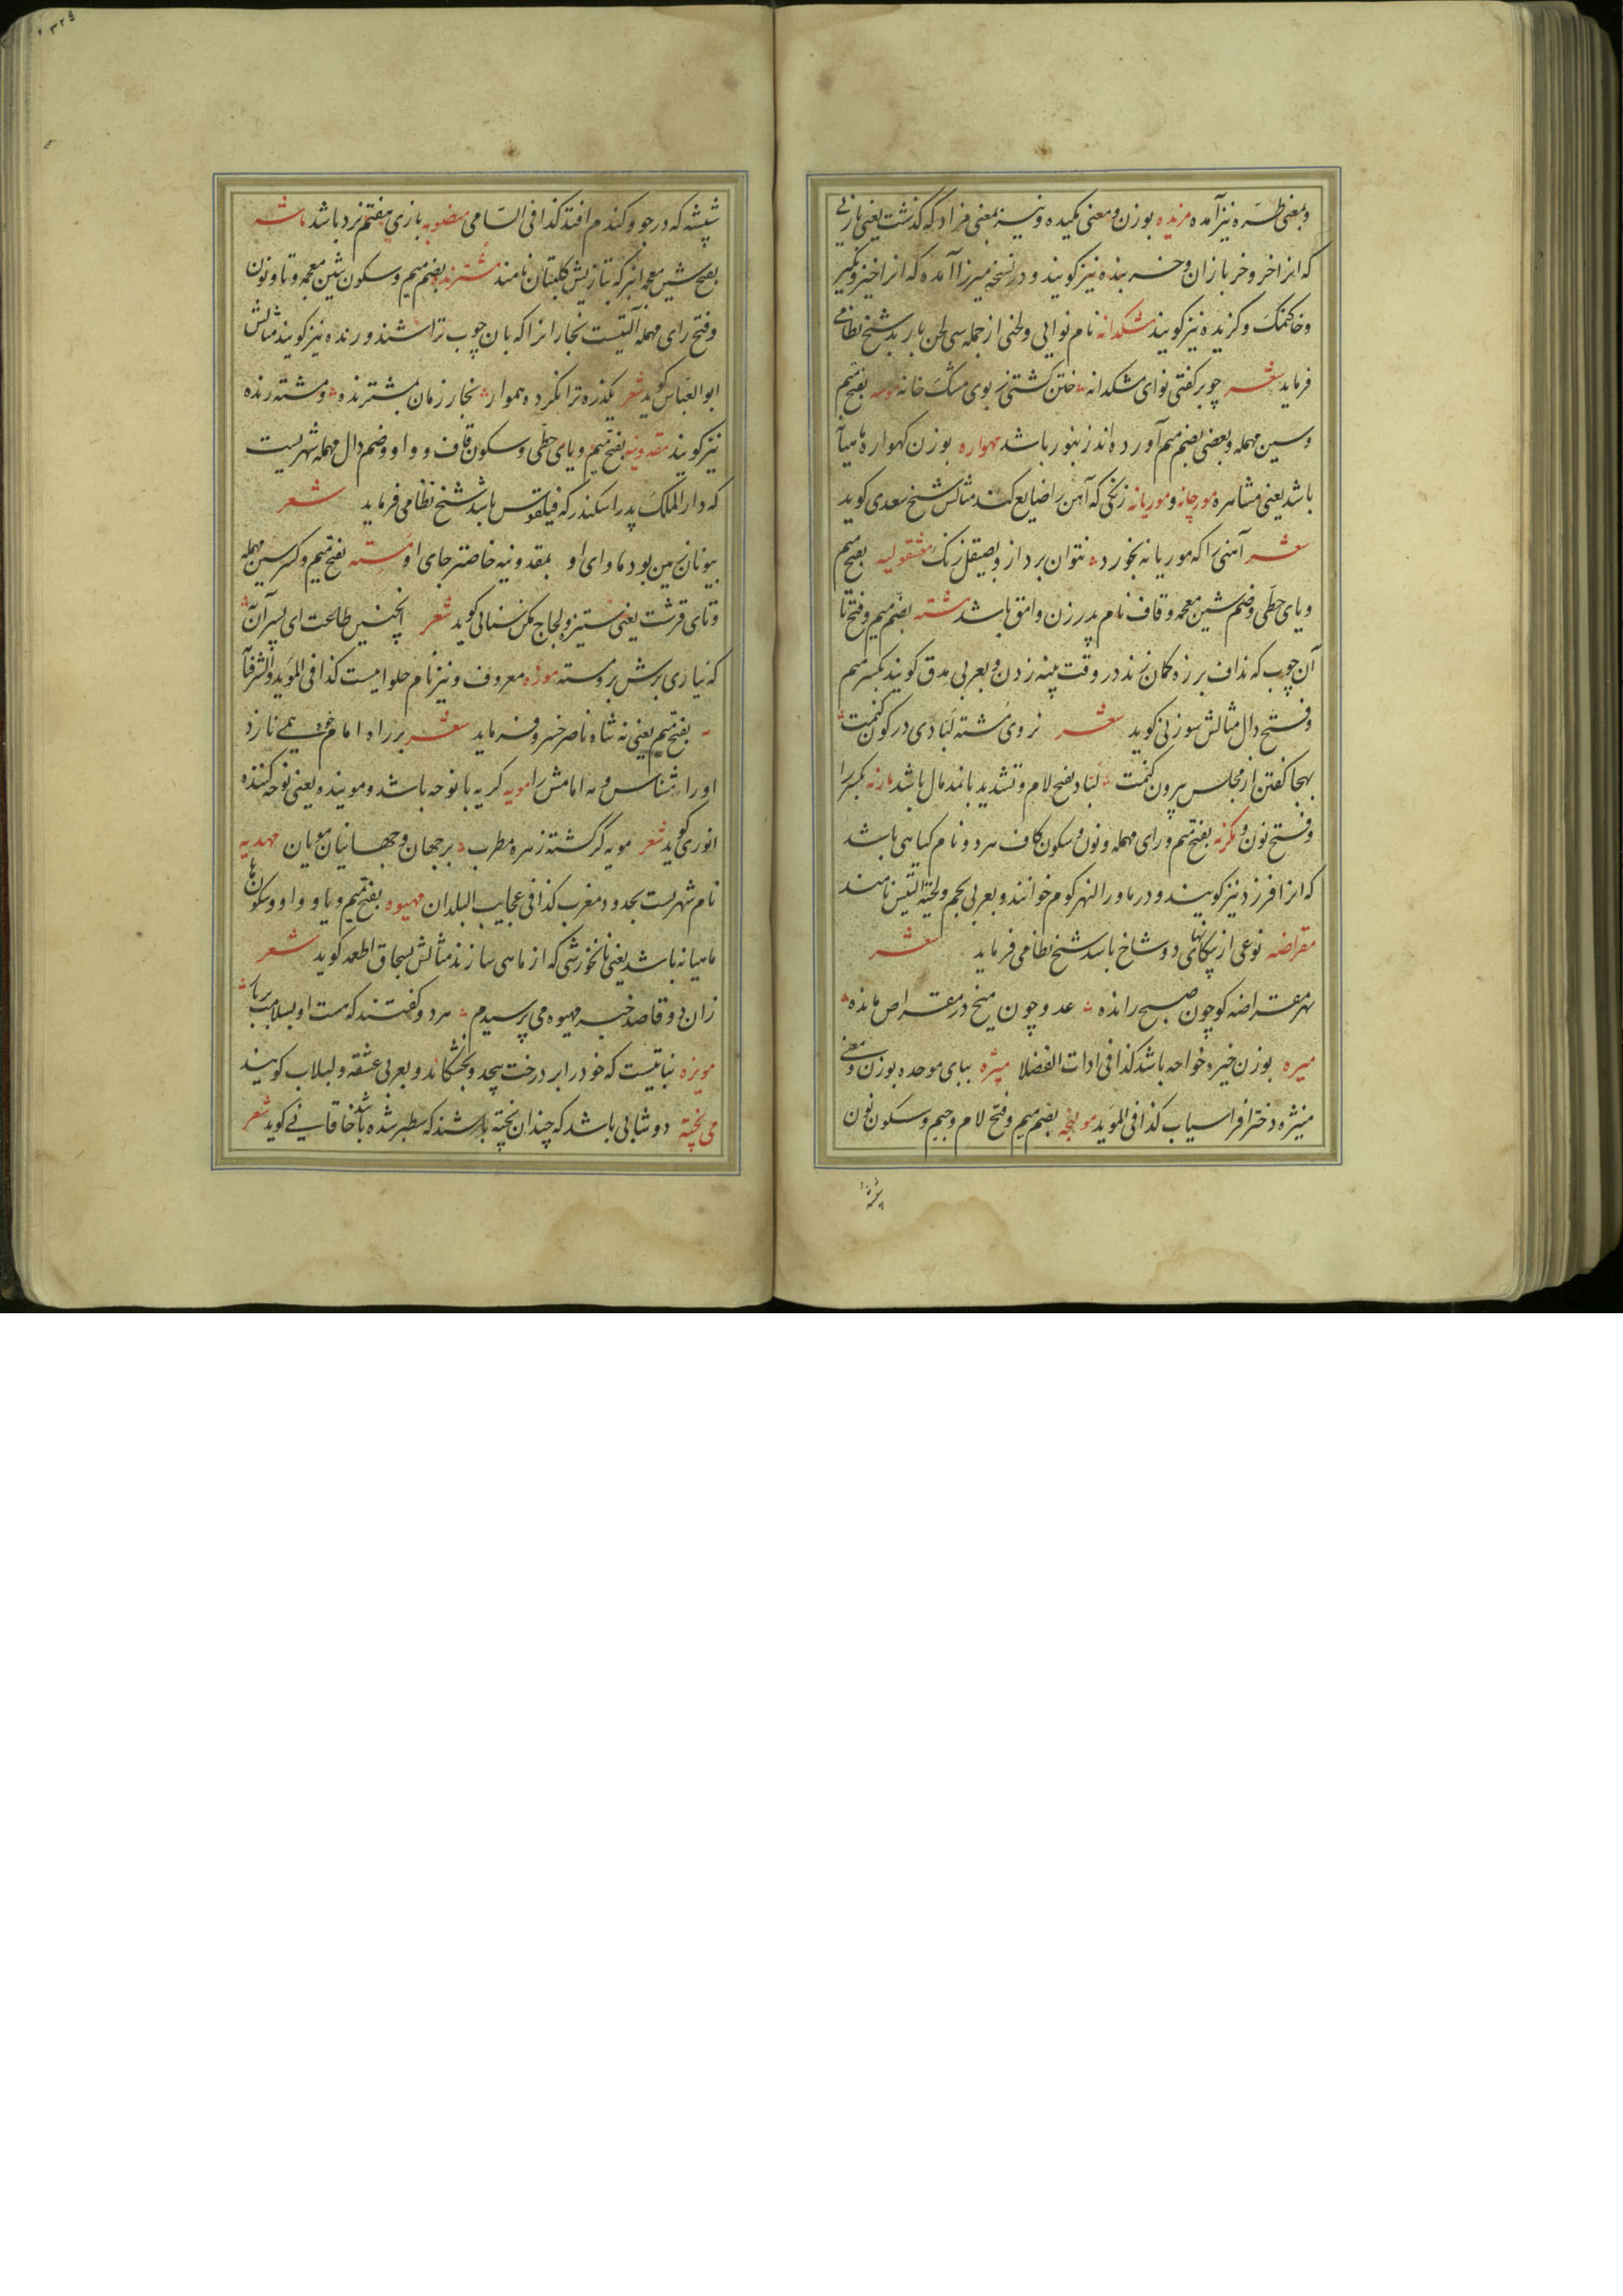 وبمعنی طره نیز آمده مزیده بوزن و معنی مکیده و نیز بمعنی مزاد که گذشت یعنی بازیی
که انرا خر و خر بازان و خر بنده نیز کویند و در نسخه میرزا آمده که انرا خیز و بکیر
و خاکمک و کزیده نیز کویند مشکدانه نام نوایی و لحنی از جمله سی لحن باربد شیخ نظامی
فرماید شعر چو بر کفتی نوای مشکدانه ختن کشتی ز بوی مشک خانه موسه بفتح میم
و سین مهمله و بعضی بضم میم آورده اند زنبور باشد مهواره بوزن کهواره ماهیانه
باشد یعنی مشاهره مورچانه و موریانه زنکی که آهن را ضایع کند مثالش شیخ سعدی کوید
شعر آهنی را که موریانه بخورد نتوان برد ازو بصیقل زنک مشقولیه بفتح میم
و یای حطی و ضم شین معجمه و قاف نام پدر زن وامق باشد مشته بضم میم و فتح تا
آن چوب که نداف بر زه کمان زند در وقت پنبه زدن و بعربی مدق کویند بکسر میم
و فتح دال مثالش سوزنی کوید شعر نروی مشته لبادی در کون کنمت
بهجا کفتن از مجلس بیرون کنمت لباد بفتح لام و تشدید با نمد مال باشد مارنه بکسر را
و فتح نون و مکرنه بفتح میم و رای مهمله و نون و سکون کاف هر دو نام کیاهی باشد
که انرا فرزد نیز کویند و در ماورا النهر کوم خوانند و بعربی نجم و لحیة التیس نامند
مقراضه نوعی از پیکانهای دو شاخ باشد شیخ نظامی فرماید شعر
بهر مقراضه کو چون صبح رانده عدو چون میخ در مقراض مانده
میره بوزن خیره خواجه باشد کذا فی ادات الفضلا میزه ببای موحده بوزن و معنی
منیژه دختر افراسیاب کذا فی الموید مولنجه بضم میم و فتح لام و جیم و سکون نون
شپشه که در جو و کندم افتد کذا فی السامی منصوبه بازی هفتم نرد باشد ماشه
بفتح شین معجمه انبر که بتازیش کلبتان نامند مشترنده بضم میم و سکون شین معجمه و تا و نون
و فتح رای مهمله آلتیست نجارانرا که بان چوب تراشند و رنده نیز کویند مثالش
ابو العباس کوید شعر یکذره ترا نکرده هموار نجار زمان بمشترنده و مشته رنده
نیز کویند مقدونیه بفتح میم و یای حطی و سکون قاف و واو و ضم دال مهمله شهریست
که دار الملک پدر اسکندر که فیلقوس باشد شیخ نظامی فرماید شعر
بیونان زمین بود ماوای او بمقدونیه خاصتر جای او مسته بفتح میم و کسر سین مهمله
و تای قرشت یعنی ستیزه و لجاج مکن سنائی کوید شعر اینچنین طلعت ای پسر آن
که نیاری برش بر و مسته موزه معروف و نیز نام حلوایست کذا فی الموید و الشرفنامه
مه بفتح میم یعنی نه شاه ناصر خسرو فرماید شعر بر راه امام خود همی نازد
او را مشناس و مه امامش را مویه کریه با نوحه باشد و مویند و یعنی نوحه کننده
انوری کوید شعر مویه گر گشته زهره مطرب بر جهان و جهانیان مویان مهدیه
نام شهریست بحدود مغرب کذا فی عجایب البلدان مهیوه بفتح میم و یا و واو و سکون ها
ماهیانه باشد یعنی نانخورشی که از ماهی سازند مثالش بسحاق اطعمه کوید شعر
زان دو قاصد خبر مهیوه می پرسیدم هر دو کفتند که هست او بسلامت برسان
مویزه نباتیست که خود را بر درخت پیچد و بخشکاند و بعربی عشقه و لبلاب کویند
می پخته دوشابی باشد که چندان پخته باشند که سطبر شده باشد خاقانی کوید شعر